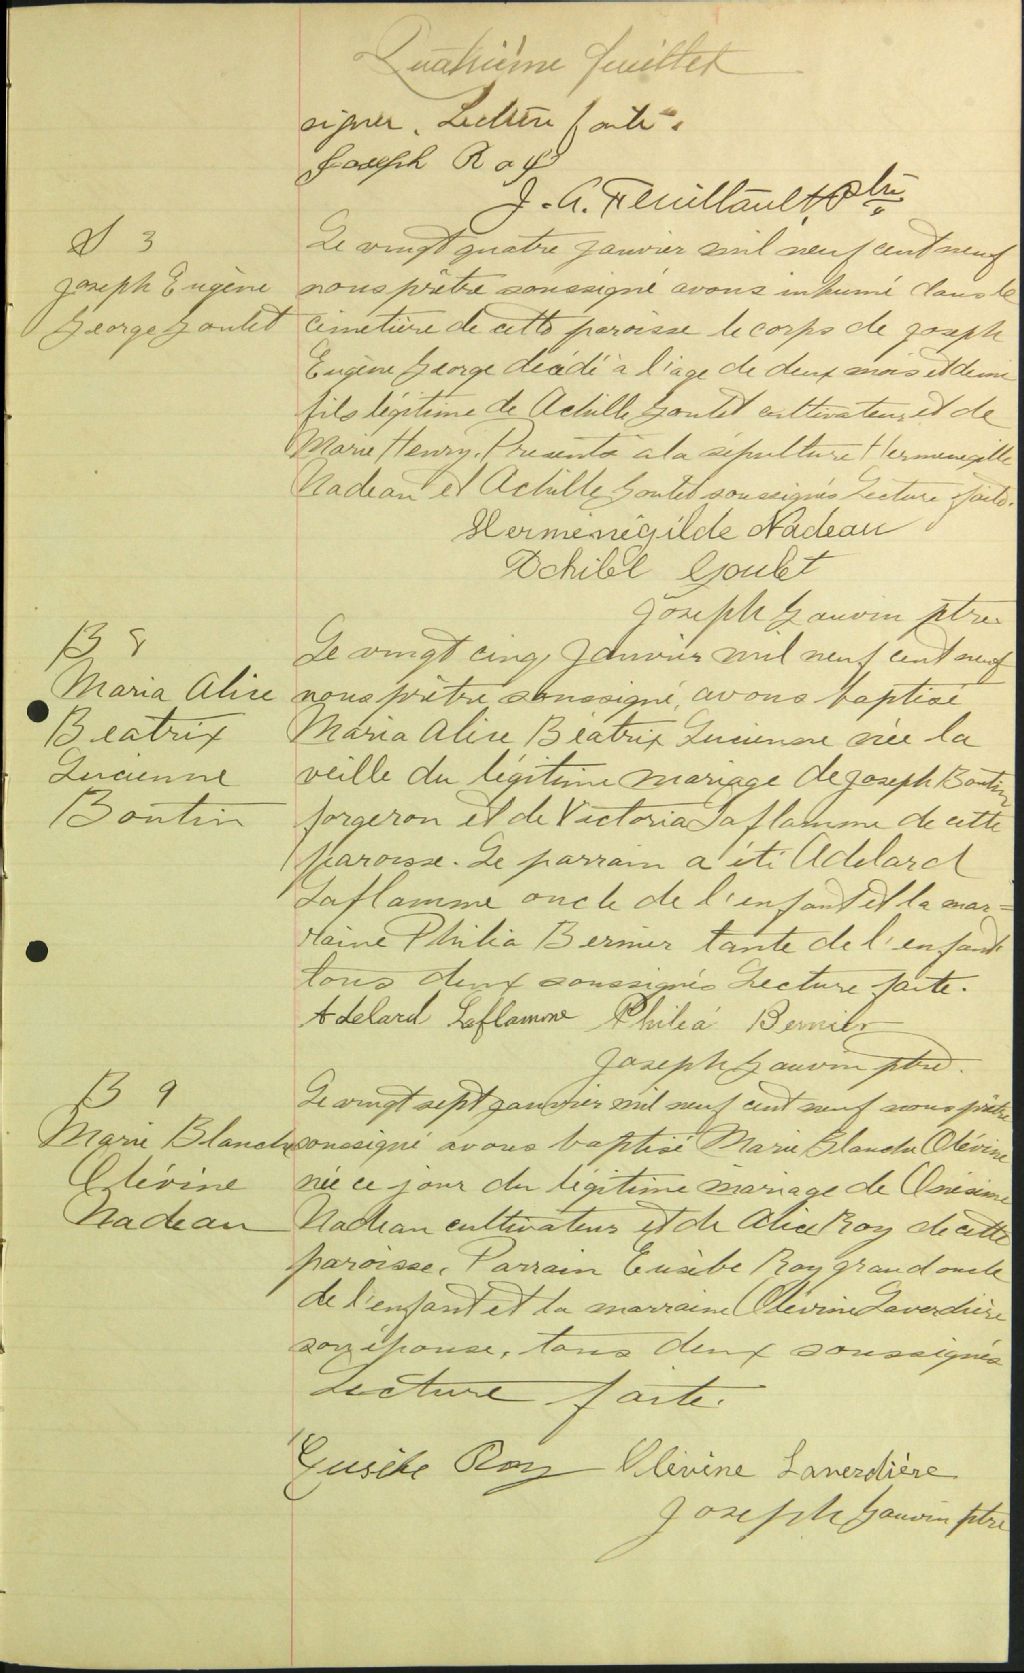 Quatrième feuillet
signer. Lecture faite.
Joseph Roy
J. A. Feuillault Ptre
S 3
Joseph Eugène
George Goulet
Le vingt quatre janvier mil neuf cent neuf
nous prêtre soussigné avons inhumé dans le
cimetière de cette paroisse le corps de Joseph
Eugène George décédé à l'age de deux mois et demi
fils légitime de Achille Goulet cultivateur et de
Marie Henry. Presents à la sépulture Hermenegilde
Nadeau et Achille Goulet soussignés Lecture faite.
Herménégilde Nadeau
Achilel Goulet
Joseph Gauvin ptre
B 8
Maria Alice
Beatrix
Lucienne
Boutin
Le vingt cinq Janvier mil neuf cent neuf
nous prêtre soussigné, avons baptisé
Maria Alice Béatrix Lucienne née la
veille du légitime mariage de Joseph Boutin
forgeron et de Victoria Laflamme de cette
paroisse. Le parrain a été Adelard
Laflamme oncle de l'enfant et la mar=
raine Philia Bernier tante de l'enfant
tous deux soussignés Lecture faite.
Adelard Laflamme Philéa Bernier
Joseph Gauvin ptre.
B 9
Marie Blanche
Olévine
Nadeau
Le vingt sept janvier mil neuf cent neuf nous prêtre
soussigné avons baptisé Marie Blanche Olévine
née ce jour du légitime mariage de Onésime
Nadeau cultivateur et de Alice Roy de cette
paroisse. Parrain Eusèbe Roy grand oncle
de l'enfant et la marraine Olévine Laverdière
son épouse, tous deux soussignés
Lecture faite.
Eusèbe Roy Olévine Laverdière
Joseph Gauvin ptre